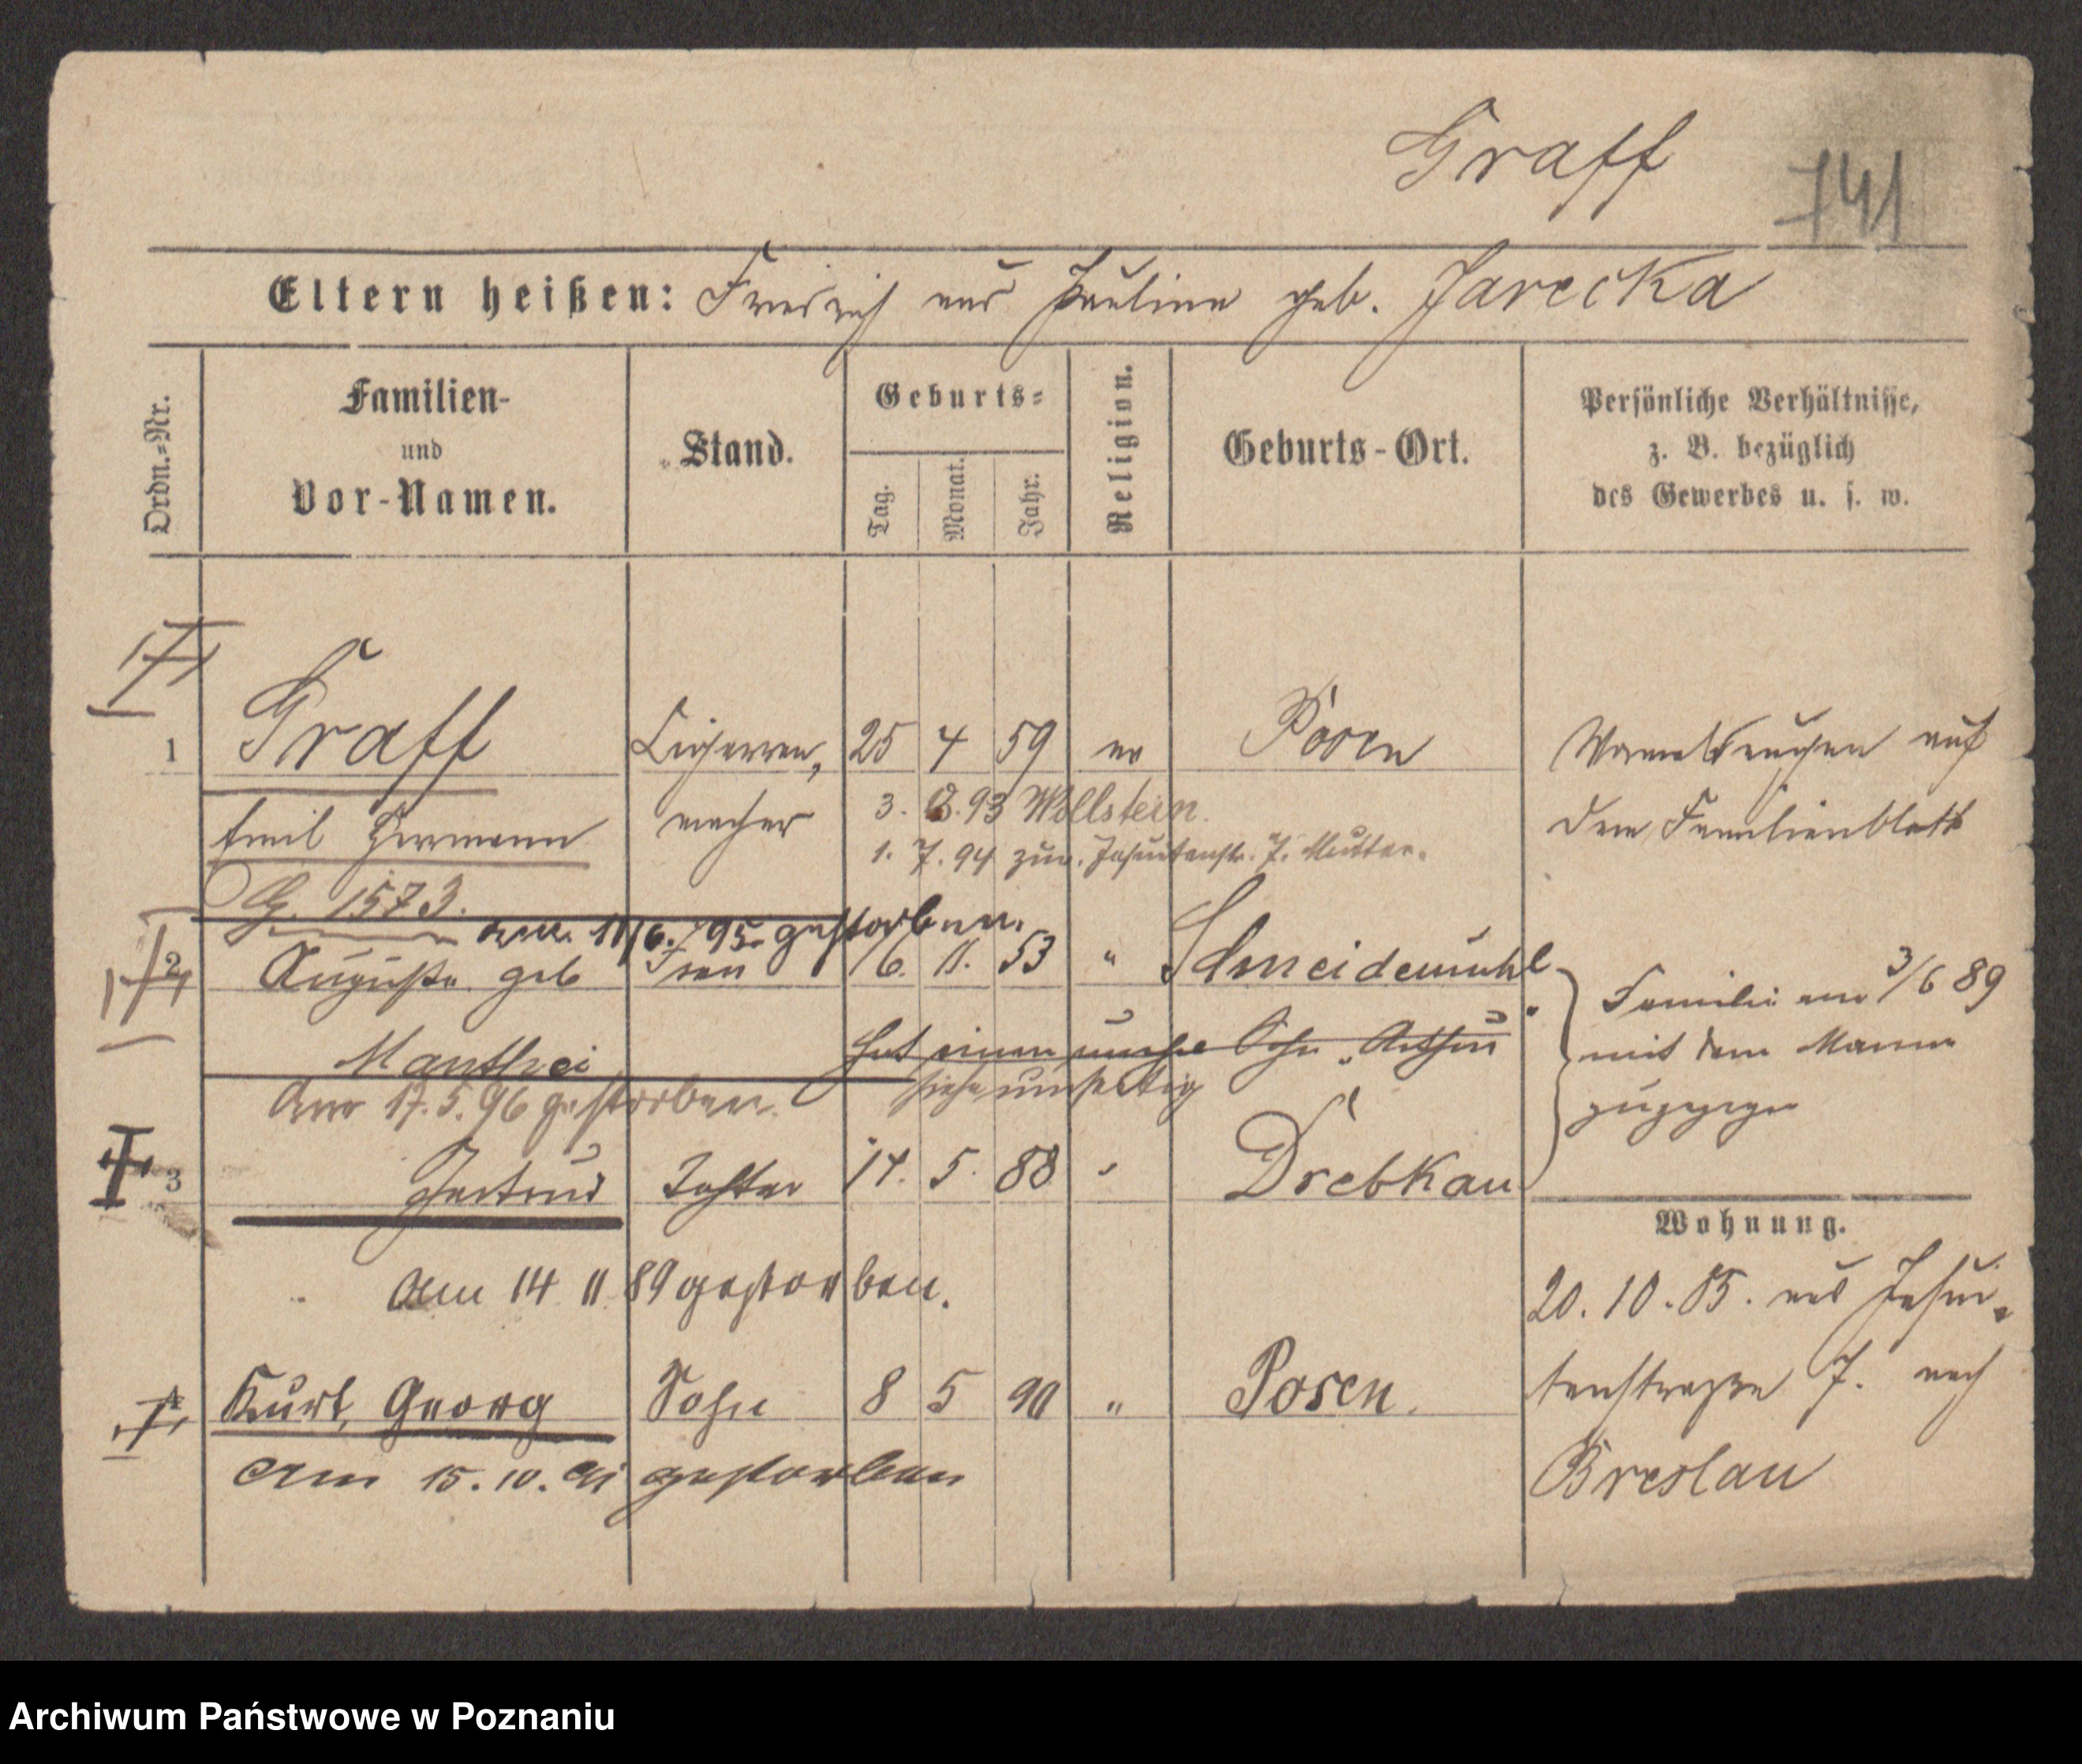 Graff
741
Eltern heißen: Friedrich und Pauline geb. Jarecka
Ordn.=Nr.
Familien-
und
Vor-Namen.
Stand.
Geburts=
Tag.
Monat.
Jahr.
Religion.
Geburts-Ort.
Persönliche Verhältnisse,
z. B. bezüglich
des Gewerbes u. s. w.
1 Graff Cigarren, 25 4 59 ev Posen
Emil Hermann macher
auf
dem Familienblatt
3. 93 Wollstein.
1. 7. 94 zur. Jesuitenstr. 7. Mutter.
G. 1573.
am 11/6. 95. gestorben.
2 Auguste geb Frau 16. 11. 53 " Schneidemühl
Manthei
Hat einen Sohn Arthur
siehe umseitig
Familie am 3/6 89
mit dem Manne
zugezogen
Am 17. 5. 96 gestorben.
3 Gertrud Tochter 14. 5. 88 " Drebkau
Am 14 11 89 gestorben.
Wohnung.
20. 10. 85. aus Jesui-
tenstraße 7. nach
Breslau
4 Kurt, Georg Sohn 8 5 90 " Posen.
Am 15. 10. 91 gestorben
Archiwum Państwowe w Poznaniu